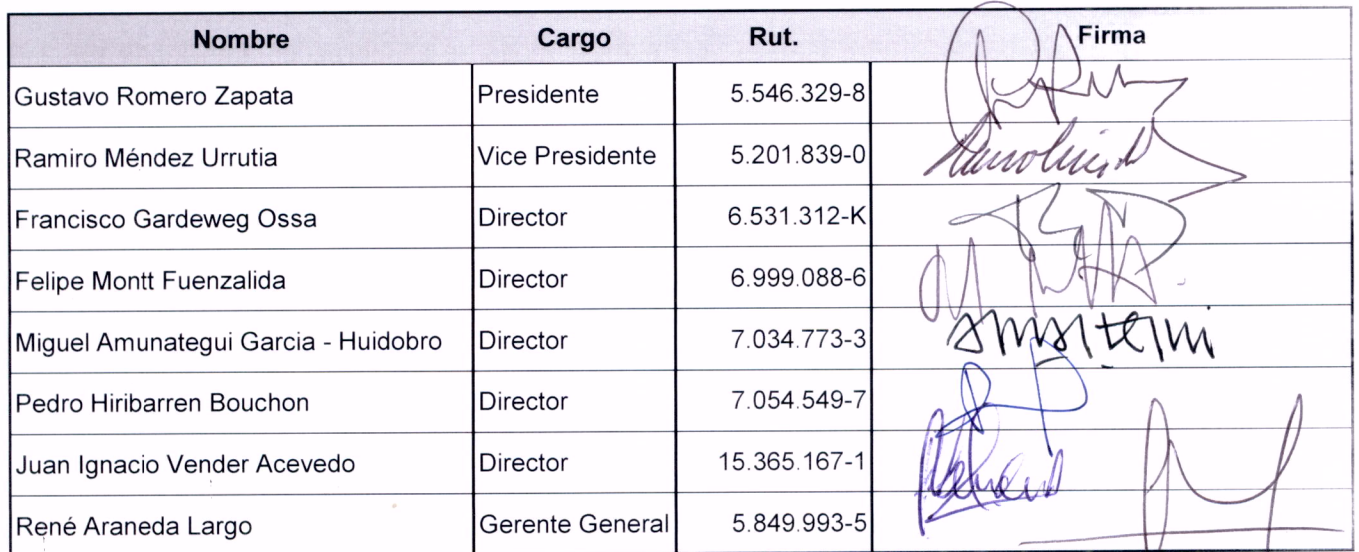 Nombre Cargo Rut. Firma
Gustavo Romero Zapata Presidente 5.546.329-8
Ramiro Méndez Urrutia Vice Presidente 5.201.839-0
Francisco Gardeweg Ossa Director 6.531.312-K
Felipe Montt Fuenzalida Director 6.999.088-6
Miguel Amunategui Garcia - Huidobro Director 7.034.773-3
Pedro Hiribarren Bouchon Director 7.054.549-7
Juan Ignacio Vender Acevedo Director 15.365.167-1
René Araneda Largo Gerente General 5.849.993-5